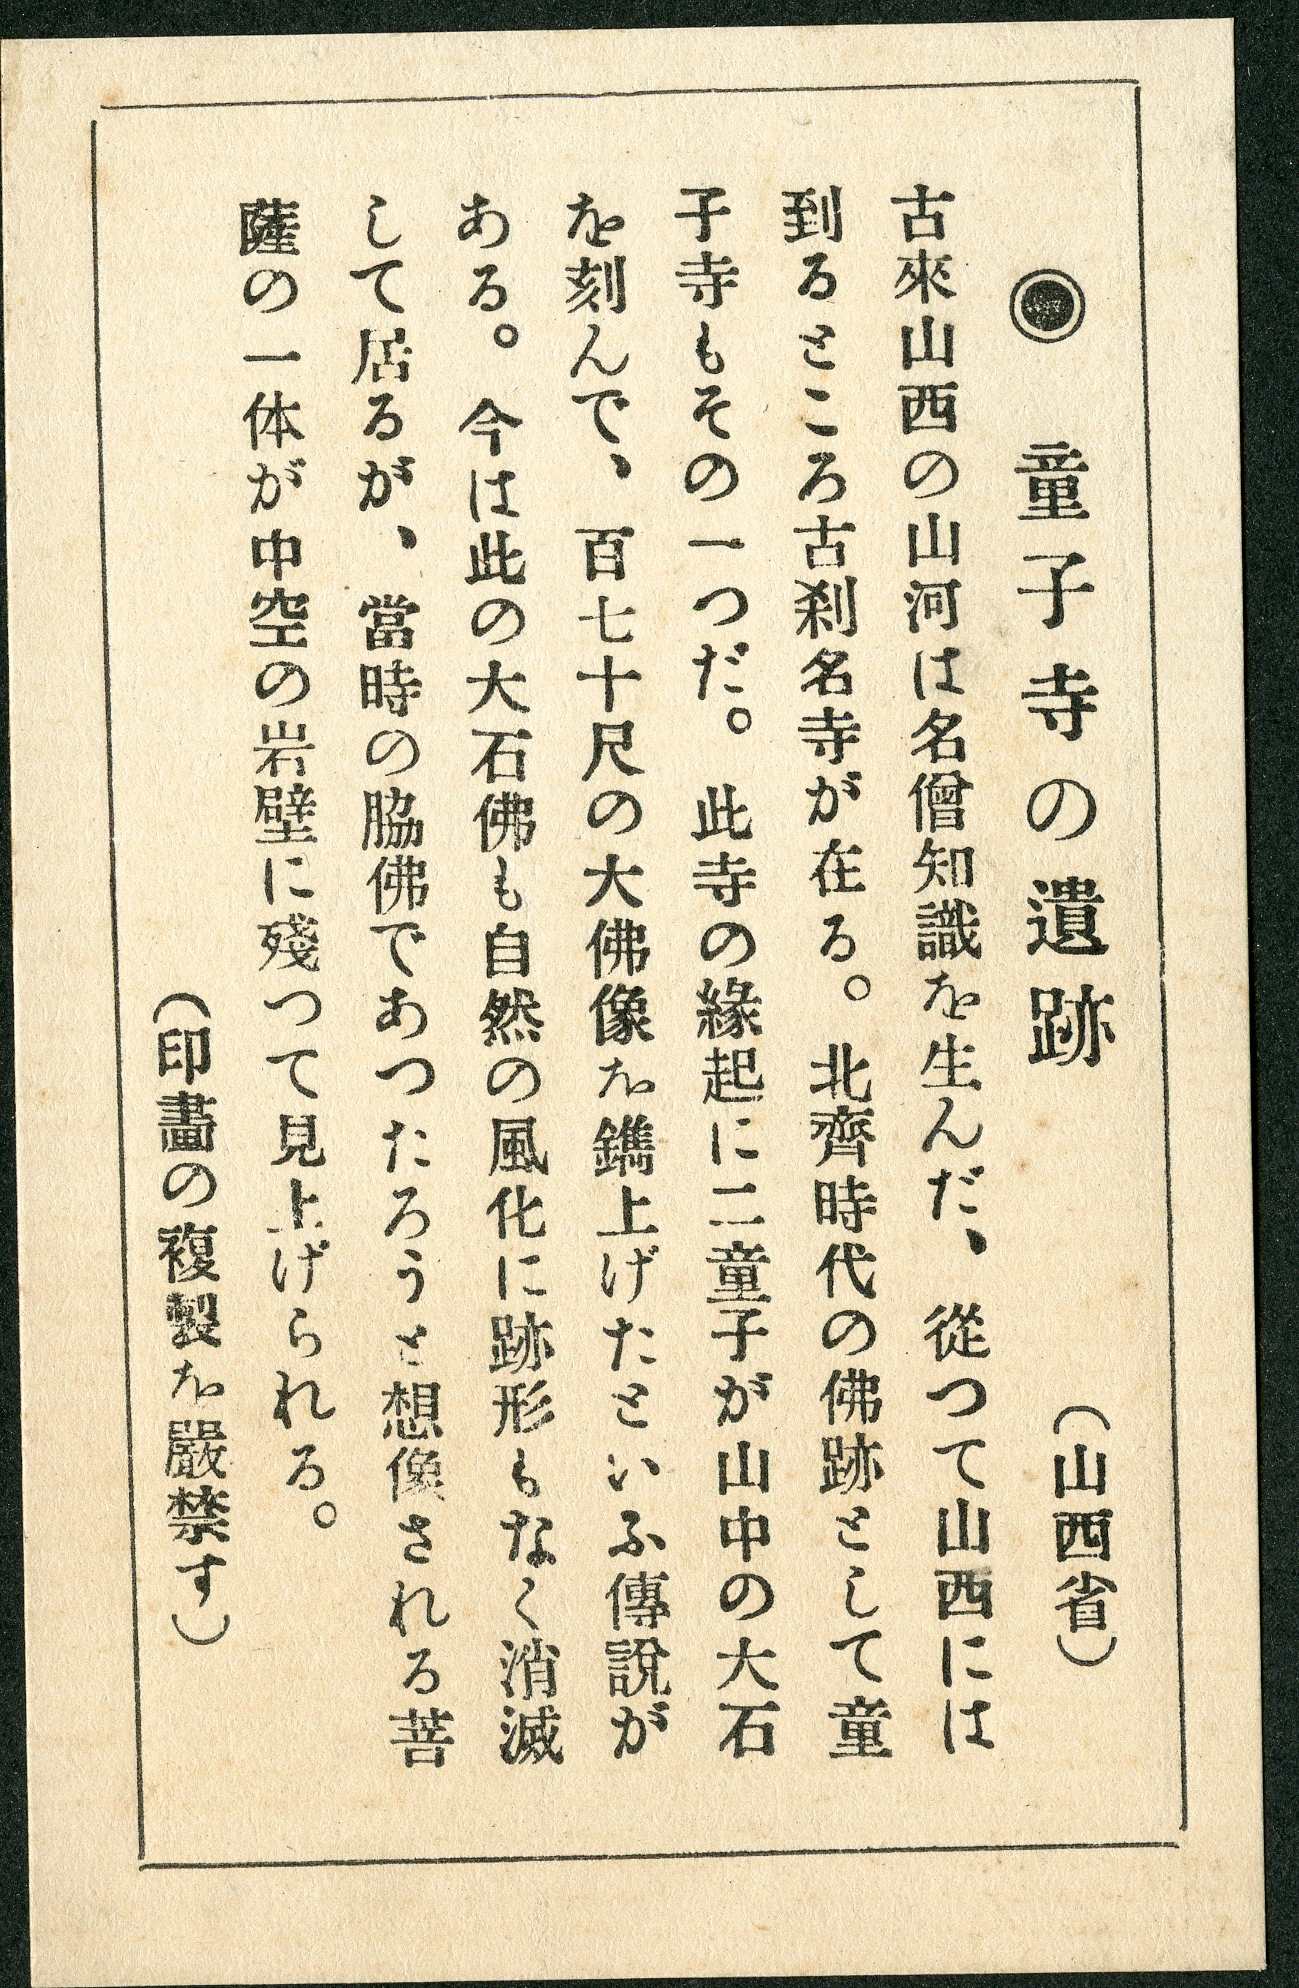 ◉ 童子寺の遺跡 (山西省)
古來山西の山河は名僧知識を生んだ、從つて山西には
到るところ古刹名寺が在る。北齊時代の佛跡として童
子寺もその一つだ。此寺の緣起に二童子が山中の大石
を刻んで、百七十尺の大佛像を鐫上げたといふ傳說が
ある。今は此の大石佛も自然の風化に跡形もなく消滅
して居るが、當時の脇佛であつたろうと想像される菩
薩の一体が中空の岩壁に殘つて見上げられる。
(印畵の複製を嚴禁す)